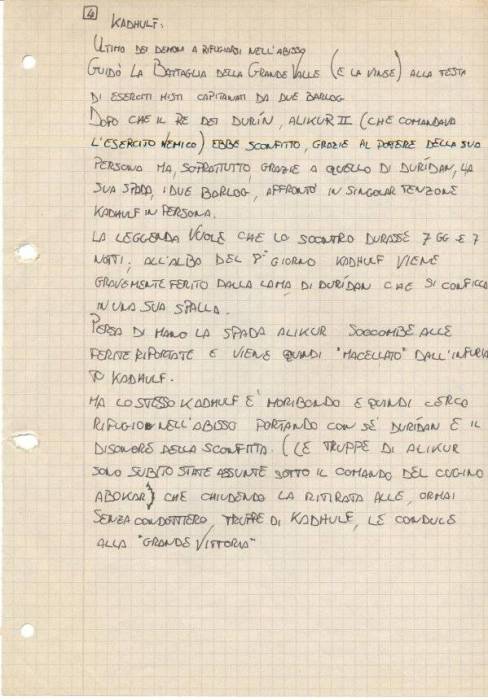 4
KADHULF:
ULTIMO DEI DEMONI A RIFUGIARSI NELL'ABISSO
GUIDÒ LA BATTAGLIA DELLA GRANDE VALLE (E LA VINSE) ALLA TESTA
DI ESERCITI MISTI CAPITANATI DA DUE BARLOG
DOPO CHE IL RE DEI DURÍN, ALIKUR II (CHE COMANDAVA
L'ESERCITO NEMICO) EBBE SCONFITTO, GRAZIE AL POTERE DELLA SUA
PERSONA MA, SOPRATTUTTO GRAZIE A QUELLO DI DURÍDAN, LA
SUA SPADA, I DUE BARLOG, AFFRONTÒ IN SINGOLAR TENZONE
KADHULF IN PERSONA.
LA LEGGENDA VUOLE CHE LO SCONTRO DURASSE 7 GG E 7
NOTTI; ALL'ALBA DEL 8° GIORNO KADHULF VIENE
GRAVEMENTE FERITO DALLA LAMA DI DURÍDAN CHE SI CONFICCA
IN UNA SUA SPALLA.
PERSA DI MANO LA SPADA ALIKUR SOCCOMBE ALLE
FERITE RIPORTATE E VIENE QUINDI "MACELLATO" DALL'INFURIA
TO KADHULF.
MA LO STESSO KADHULF E' MORIBONDO E QUINDI CERCO
RIFUGIO NELL'ABISSO PORTANDO CON SE' DURÍDAN E IL
DISONORE DELLA SCONFITTA. (LE TRUPPE DI ALIKUR
SONO SUBITO STATE ASSUNTE SOTTO IL COMANDO DEL CUGINO
ABOKAR) CHE CHIUDENDO LA RITIRATA ALLE, ORMAI
SENZA CONDOTTIERO, TRUPPE DI KADHULF, LE CONDUCE
ALLA "GRANDE VITTORIA"